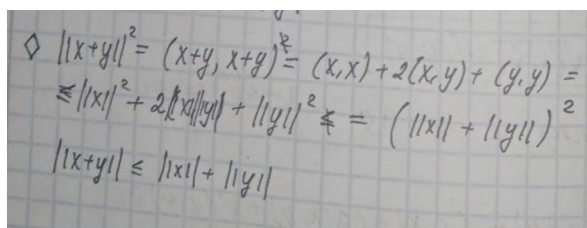 ◊ ||x+y||² = (x+y, x+y) = (x,x) + 2(x,y) + (y,y) =
≤ ||x||² + 2||x||||y|| + ||y||² = (||x|| + ||y||)²
||x+y|| ≤ ||x|| + ||y||